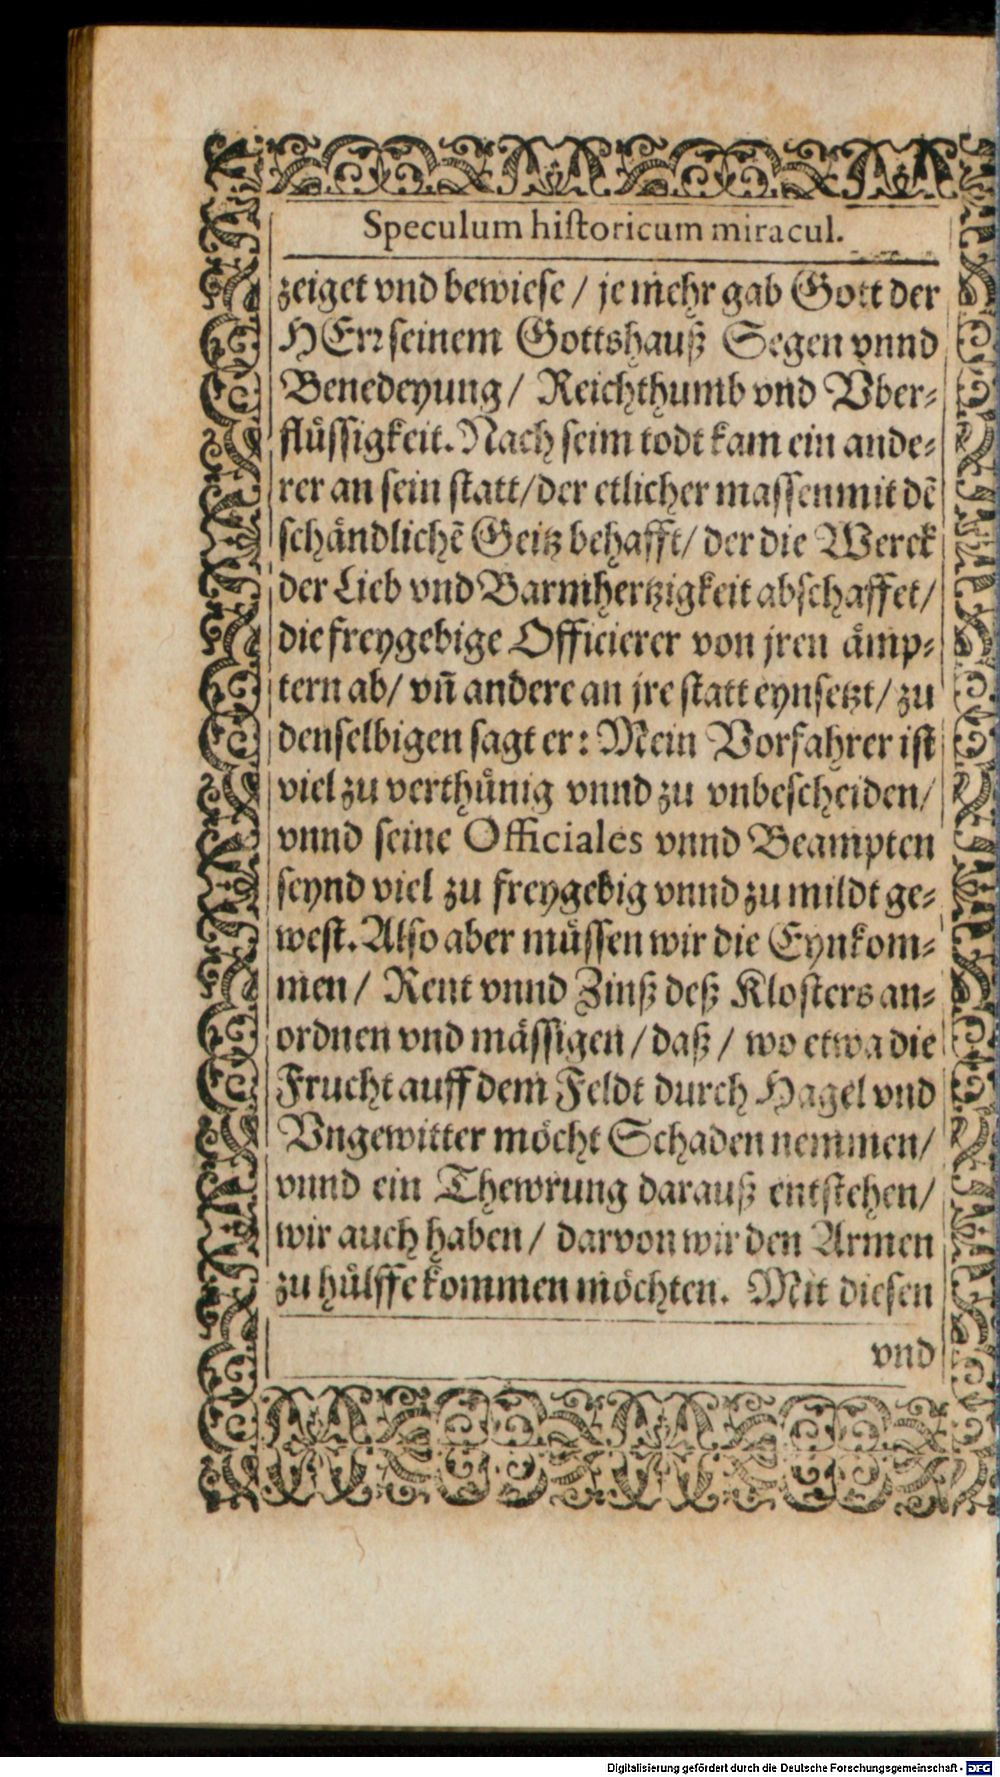 Speculum historicum miracul.
zeiget vnd bewiese / je mehr gab Gott der
HErꝛ seinem Gottshauß Segen vnnd
Benedeyung / Reichthumb vnd Vber⸗
flüssigkeit. Nach seim todt kam ein ande⸗
rer an sein statt / der etlicher massen mit dẽ
schändlichẽ Geitz behafft / der die Werck
der Lieb vnd Barmhertzigkeit abschaffet /
die freygebige Officierer von jren ämp⸗
tern ab / vñ andere an jre statt eynsetzt / zu
denselbigen sagt er : Mein Vorfahrer ist
viel zu verthünig vnnd zu vnbescheiden /
vnnd seine Officiales vnnd Beampten
seynd viel zu freygebig vnnd zu mildt ge⸗
west. Also aber müssen wir die Eynkom⸗
men / Rent vnnd Zinß deß Klosters an⸗
ordnen vnd mässigen / daß / wo etwa die
Frucht auff dem Feldt durch Hagel vnd
Vngewitter möcht Schaden nemmen /
vnnd ein Thewrung darauß entstehen /
wir auch haben / darvon wir den Armen
zu hülffe kommen möchten. Mit diesen
vnd
Digitalisierung gefördert durch die Deutsche Forschungsgemeinschaft - DFG